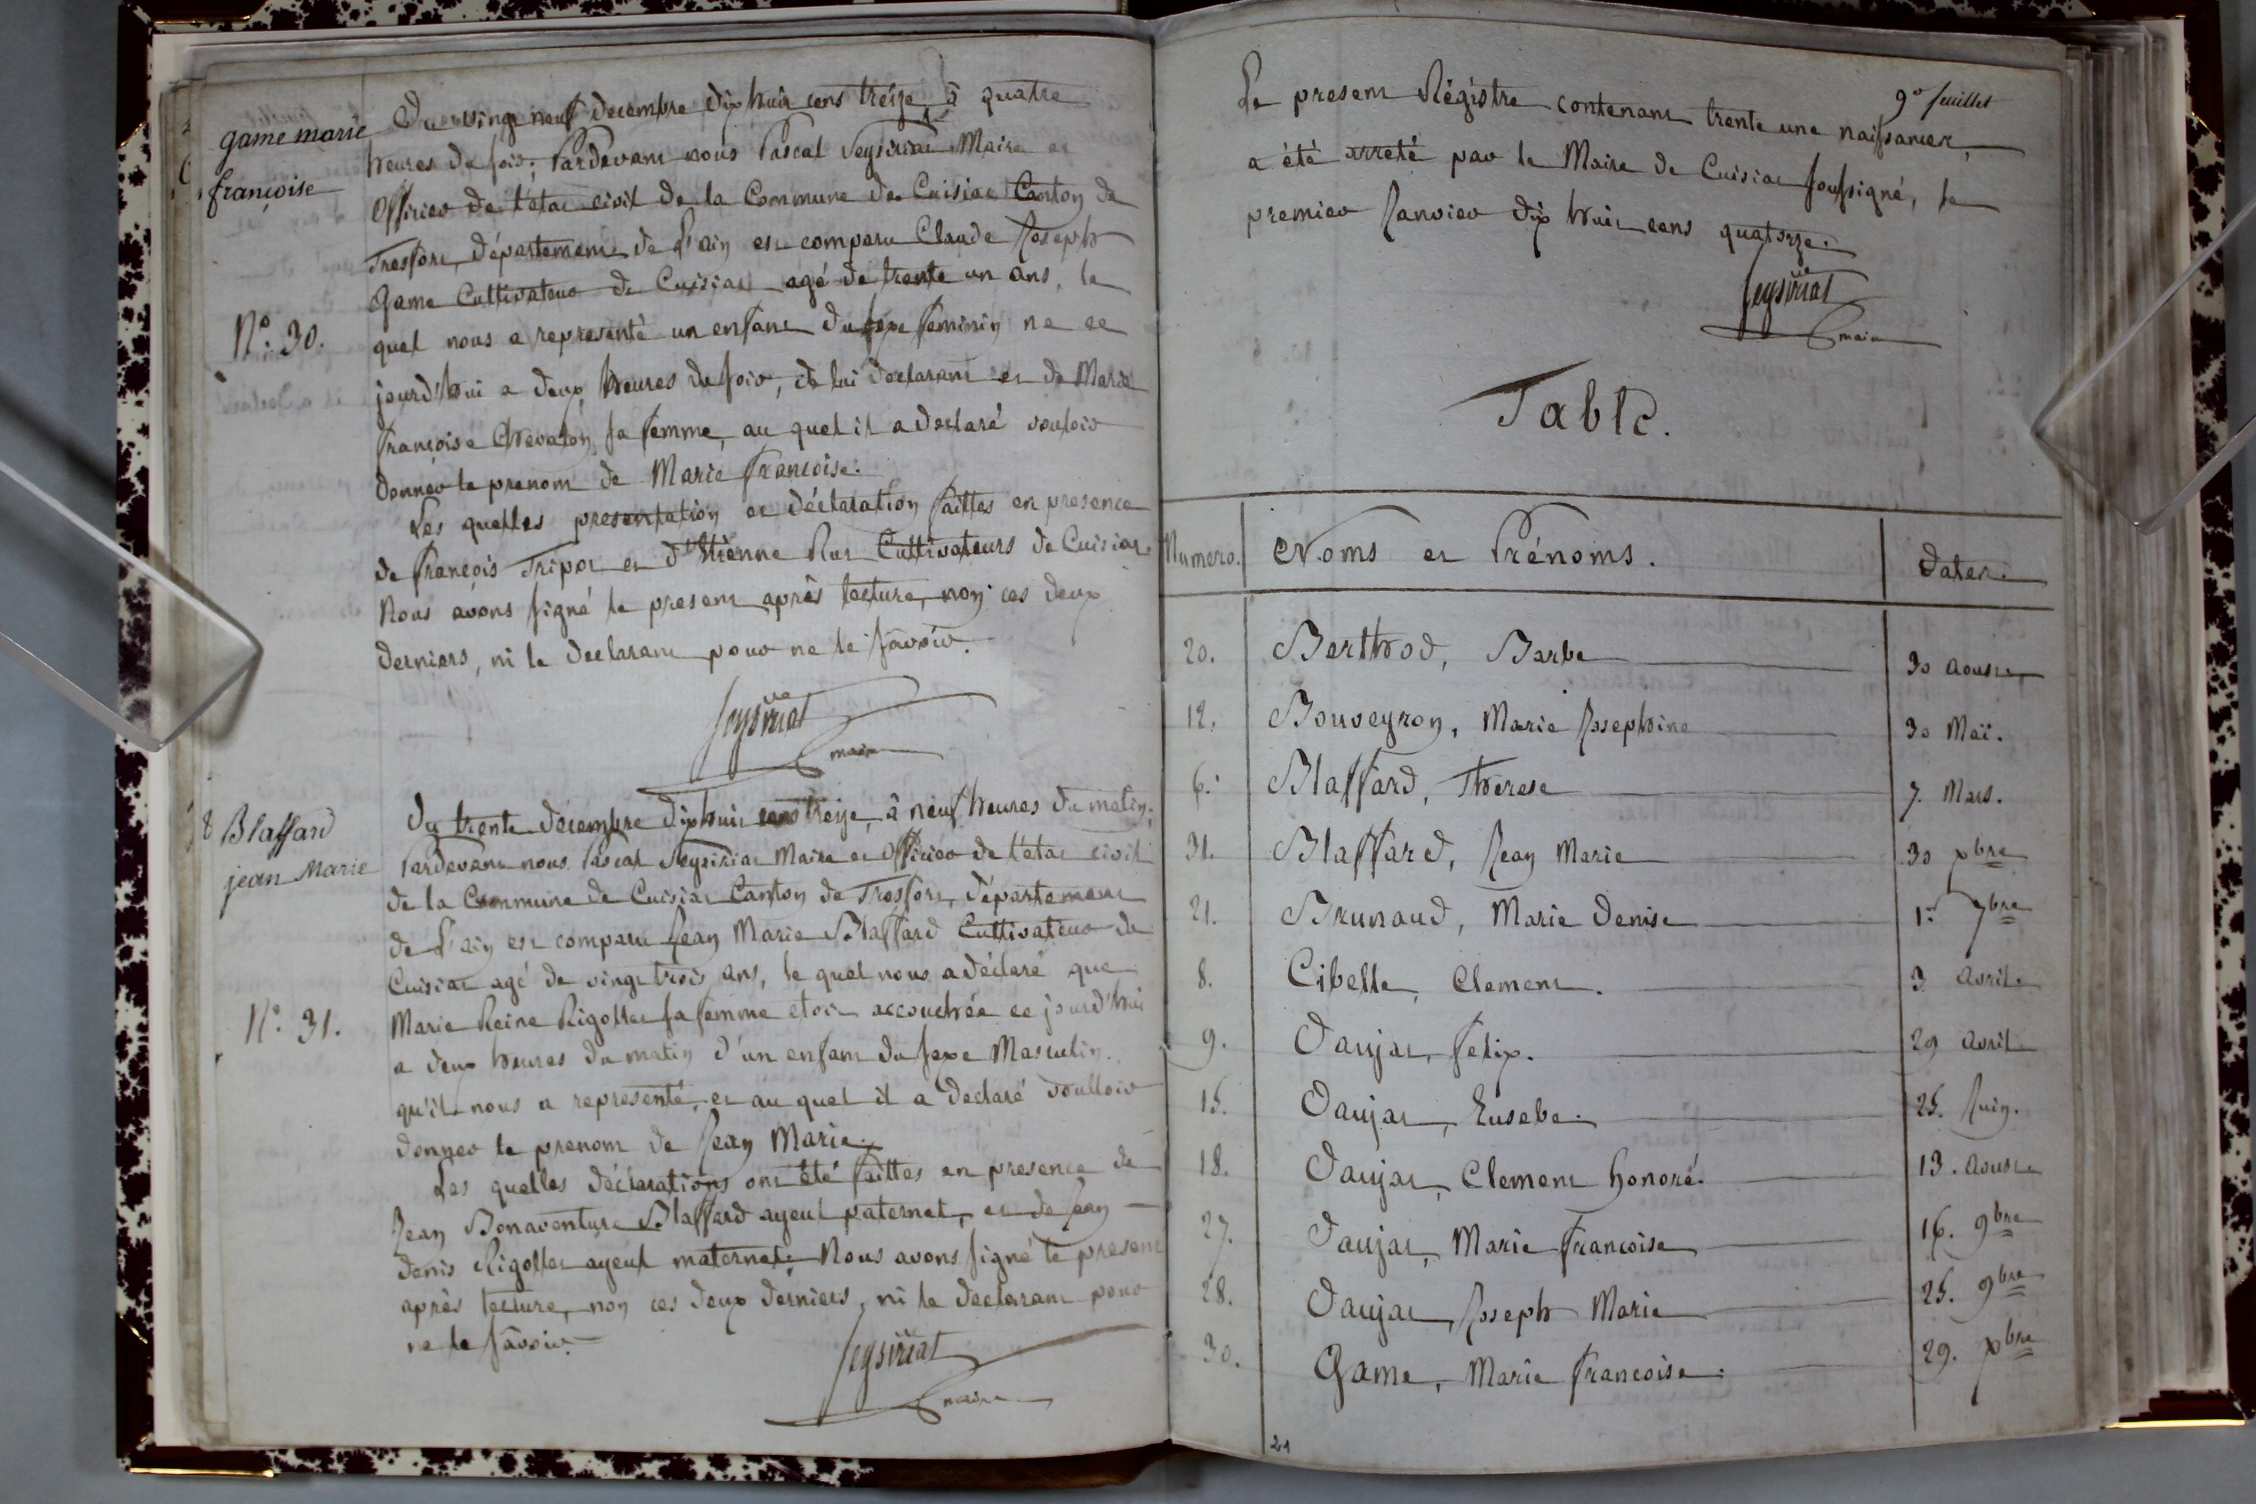 game marie
françoise
N.° 30.
Du vingt neuf decembre dix huit cens treize, à quatre
heures du soir; Pardevant nous Pascal Seysiriat Maire et
Officier de l'état civil de la Commune de Cuisiat Canton de
Tresfort, département de l'ain est comparu Claude Joseph
Game Cultivateur de Cuisiat agé de trente un ans, le
quel nous a representé un enfant du sexe feminin né ce
jourd'hui a deux heures du soir, de lui declarant et de Marie
françoise Chevalon sa femme, au quel il a declaré vouloir
donner le prenom de Marie françoise.
Les quelles presentation et déclaration faittes en presence
de françois Tripoz et d'Etienne Put Cultivateurs de Cuisiat.
Nous avons signé le present après lecture, non ces deux
derniers, ni le declarant pour ne le sâvoir.
Seysiriat
maire
8 Blaffard
jean Marie
N.° 31.
Du trente décembre dix huit cens treize, à neuf heures du matin;
Pardevant nous Pascal Seysiriat Maire et Officier de l'état civil
de la Commune de Cuisiat Canton de Tresfort, département
de l'ain est comparu Jean Marie Blaffard Cultivateur de
Cuisiat agé de vingt trois ans, le quel nous a déclaré que
Marie Reine Rigollet sa femme etoit accouchée ce jourd'hui
a deux heures du matin d'un enfant du sexe Masculin.
qu'il nous a representé, et au quel il a declaré voulloir
donner le prenom de Jean Marie.
Les quelles déclarations ont été faittes en presence de
Jean Bonaventure Blaffard ayeul paternel, et de Jean
denis Rigollet ayeul maternel. Nous avons signé le present
après lecture, non ces deux derniers, ni le declarant pour
ne le sâvoir.
Seysiriat
maire
9.e feuillet
Le present Régistre contenant trente une naissances,
a été arreté par le Maire de Cuisiat soussigné, le
premier Janvier dix huit cens quatorze.
Seysiriat
maire
Table.
Numero. Noms et Prénoms. Dates.
20. Berthod, Barbe 30 aoust
12. Bouveyron, Marie Josephine 30 Maï.
6. Blaffard, Therese 7. Mars.
31. Blaffard, Jean Marie 30 xbre
21. Brunaud, Marie Denise 1.er 7bre
8. Cibelle, Clement. 3 avril
9. Daujat, felix. 29 avril
15. Daujat, Eusebe. 25. Juin.
18. Daujat, Clement honoré. 13. aoust
27. Daujat, Marie françoise 16. 9bre
28. Daujat, Joseph Marie 25. 9bre
30. Game, Marie françoise. 29. xbre
21